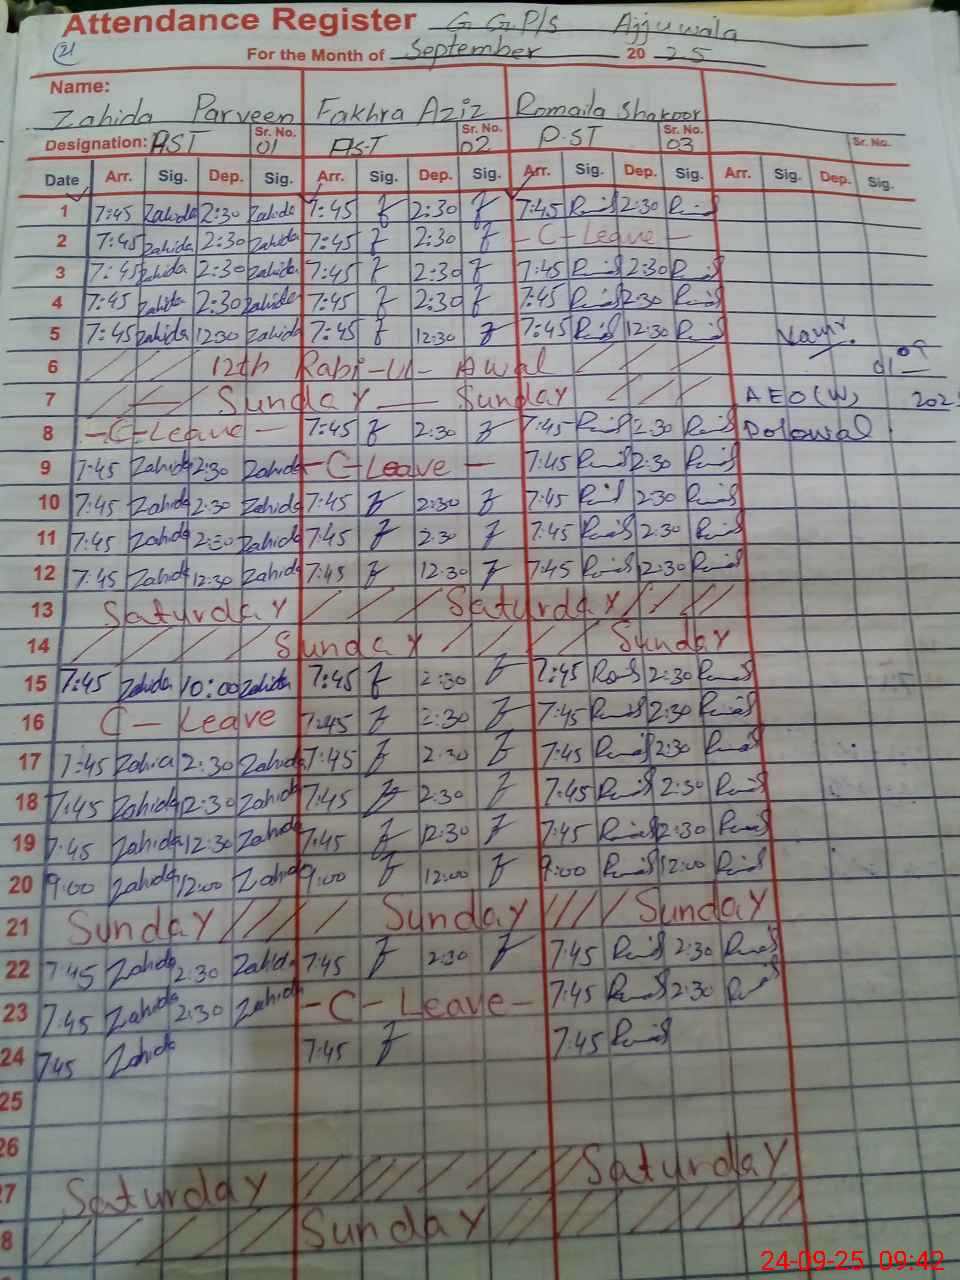 Attendance Register G G P/s Ajjuwala
21 For the Month of September 20 25
Name:
Zahida Parveen Fakhra Aziz Romaila Shakoor
Designation: AST Sr. No. 01 AST Sr. No. 02 P.ST Sr. No. 03 Sr. No.
Date Arr. Sig. Dep. Sig. Arr. Sig. Dep. Sig. Arr. Sig. Dep. Sig. Arr. Sig. Dep. Sig.
1 7:45 Zahida 2:30 Zahida 7:45 2:30 7:45 2:30
2 7:45 Zahida 2:30 Zahida 7:45 2:30 - C - Leave -
3 7:45 Zahida 2:30 Zahida 7:45 2:30 7:45 2:30
4 7:45 Zahida 2:30 Zahida 7:45 2:30 7:45 2:30
5 7:45 Zahida 12:30 Zahida 7:45 12:30 7:45 12:30
6 12th Rabi-ul-Awal
7 Sunday Sunday AEO(W)
8 - C - Leave - 7:45 2:30 7:45 2:30
9 7:45 Zahida 2:30 Zahida - C - Leave - 7:45 2:30
10 7:45 Zahida 2:30 Zahida 7:45 2:30 7:45 2:30
11 7:45 Zahida 2:30 Zahida 7:45 2:30 7:45 2:30
12 7:45 Zahida 12:30 Zahida 7:45 12:30 7:45 12:30
13 Saturday Saturday
14 Sunday Sunday
15 7:45 Zahida 10:00 Zahida 7:45 2:30 7:45 2:30
16 C - Leave 7:45 2:30 7:45 2:30
17 7:45 Zahida 2:30 Zahida 7:45 2:30 7:45 2:30
18 7:45 Zahida 2:30 Zahida 7:45 2:30 7:45 2:30
19 7:45 Zahida 12:30 Zahida 7:45 12:30 7:45 12:30
20 9:00 Zahida 12:00 Zahida 9:00 12:00 9:00 12:00
21 Sunday Sunday Sunday
22 7:45 Zahida 2:30 Zahida 7:45 2:30 7:45 2:30
23 7:45 Zahida 2:30 Zahida - C - Leave - 7:45 2:30
24 7:45 Zahida 7:45 7:45
25
26
27 Saturday Saturday
8 Sunday
24-09-25 09:42